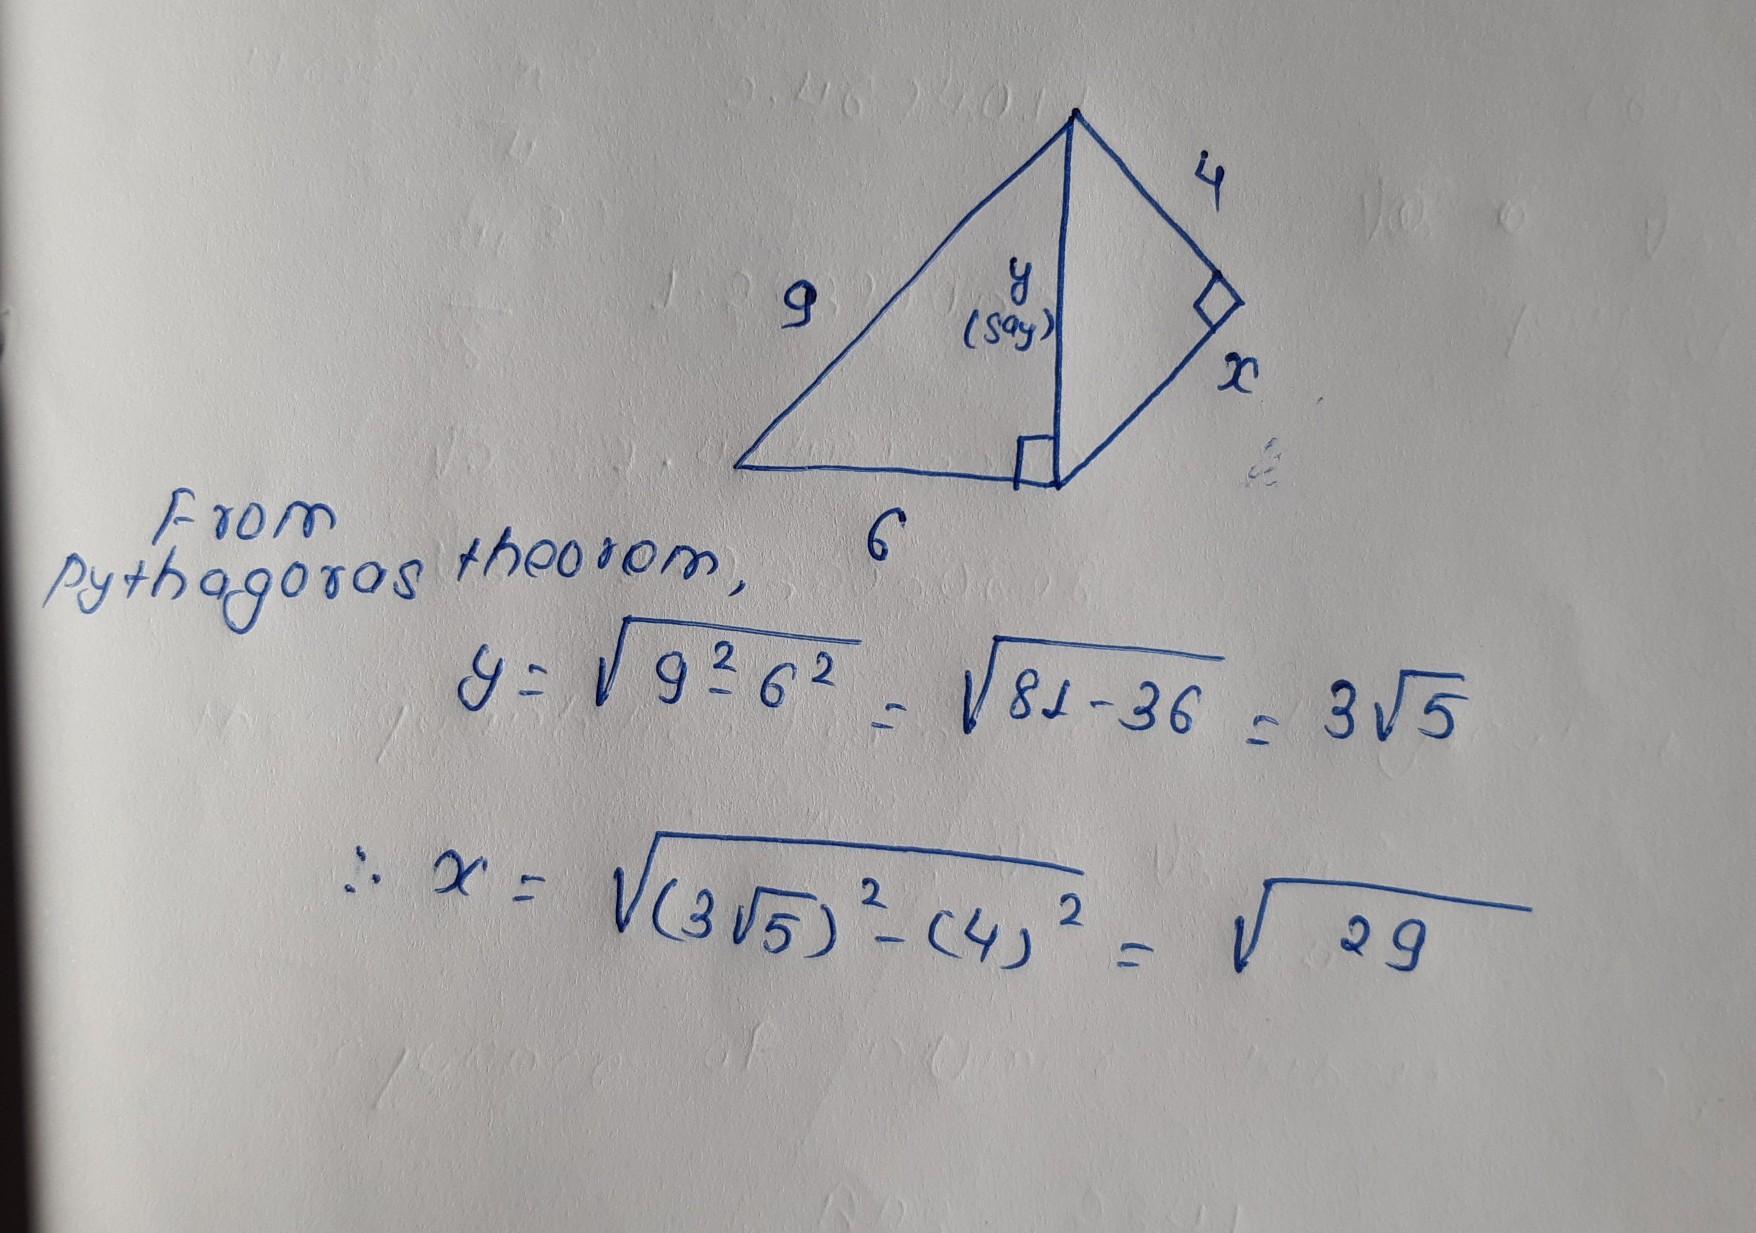 4
9
y
(say)
x
6
From
Pythagoras theorem,
y = √9² - 6² = √81 - 36 = 3√5
∴ x = √(3√5)² - (4)² = √29